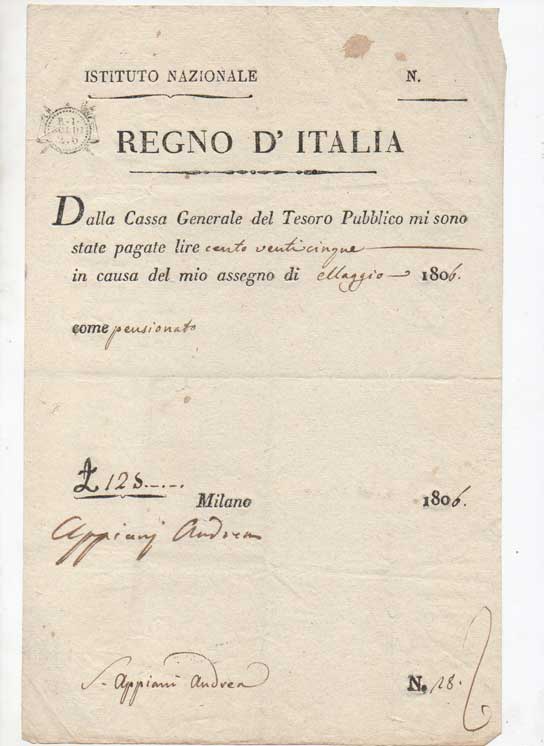 ISTITUTO NAZIONALE N.
R. I.
SOLDI
REGNO D' ITALIA
Dalla Cassa Generale del Tesoro Pubblico mi sono
state pagate lire cento venticinque
in causa del mio assegno di Maggio 1806.
come pensionato
£ 125.
Milano 1806.
Appiani Andrea
S. Appiani Andrea N. 28.